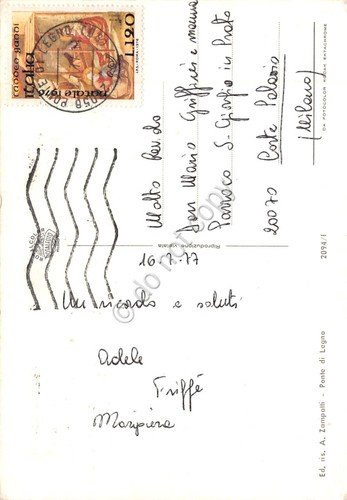 L.120
natale 1976
italia
PONTE DI LEGNO
Molto Rev.do
Don Mario Griffini e mamma
Parroco S. Giorgio in Prato
20070 Corte Palasio
(Milano)
DA FOTOCOLOR KODAK EKTACHROME
Riproduzione vietata
2094/F
16.7.77
Un ricordo e saluti
Adele
Ed. ris. A. Zampatti - Ponte di Legno
do not copy